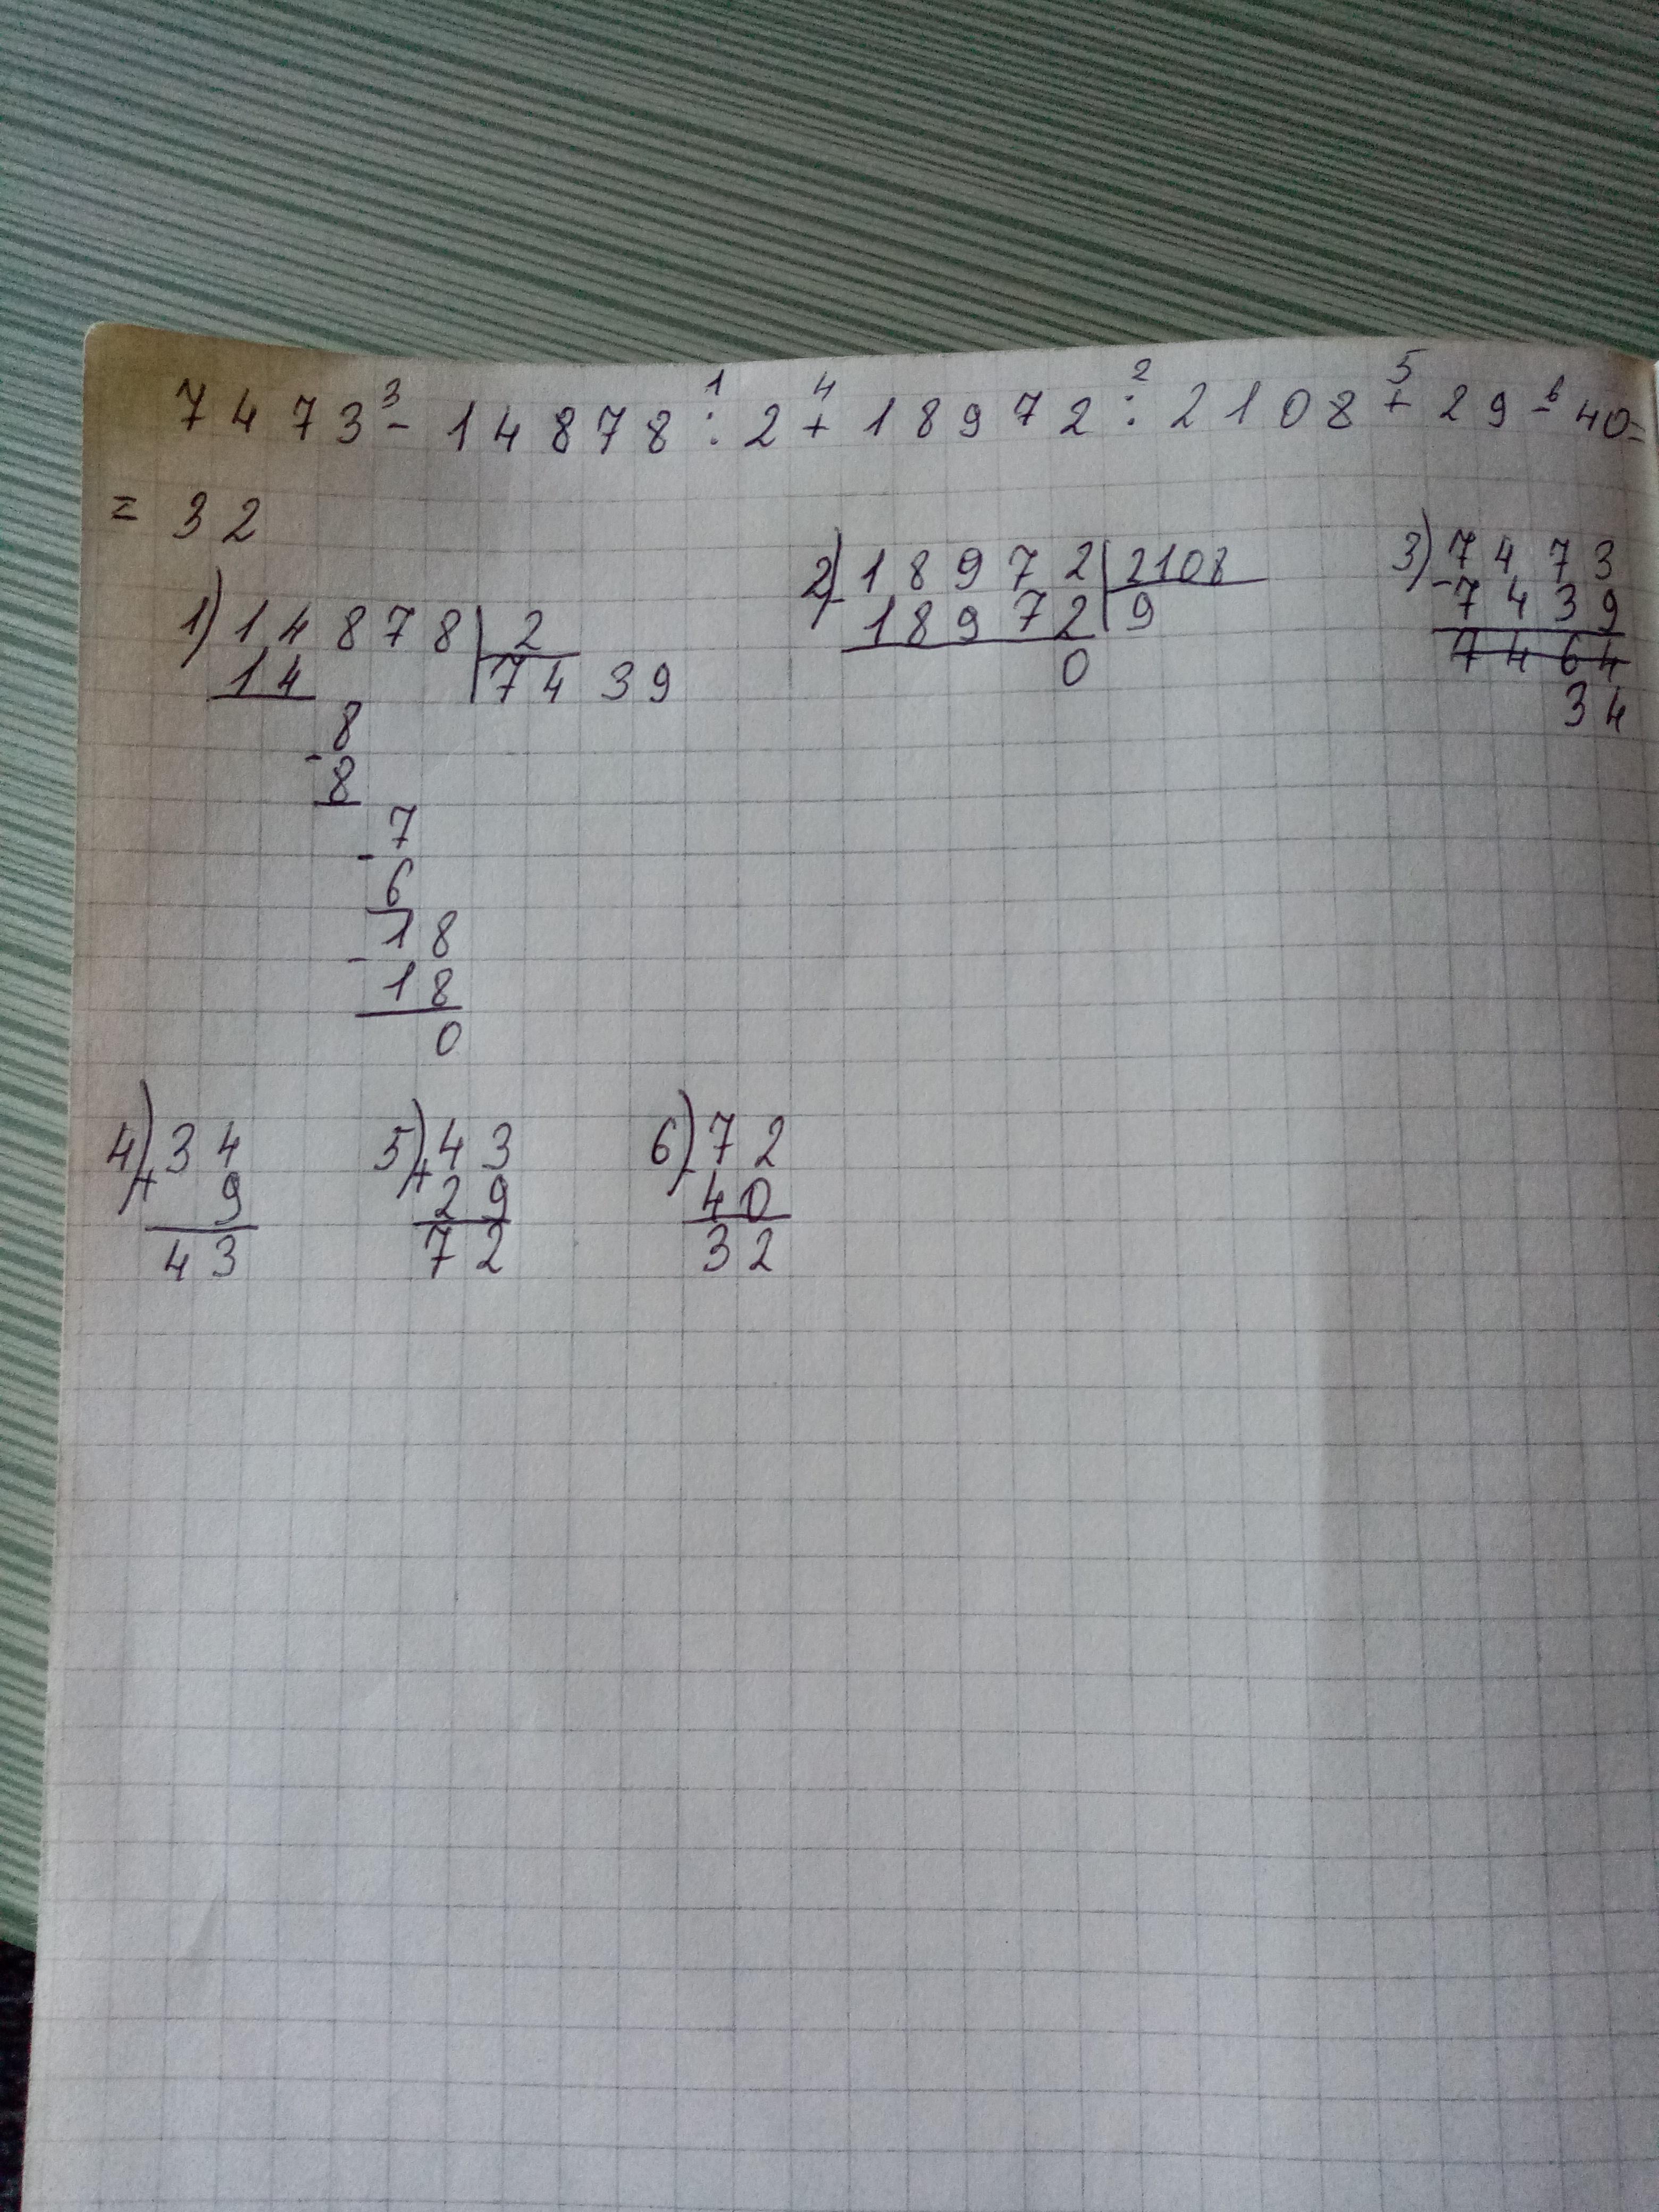 7473 - 14878 : 2 + 18972 : 2108 + 29 - 40 =
3 1 4 2 5 6
= 32
1) 14878 | 2
14 | 7439
- 8
8
- 7
6
- 18
18
0
2) - 18972 | 2108
18972 | 9
0
3) - 7473
7439
7464
34
4) + 34
9
43
5) + 43
29
72
6) - 72
40
32